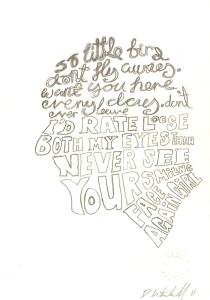 so little bird
don't fly aways.
want you here
every days. don't
ever leave
I'D RATE LOOSE
BOTH MY EYES THAN
NEVER SEE
YOUR SMILING
FACE
AGAIN GIRL